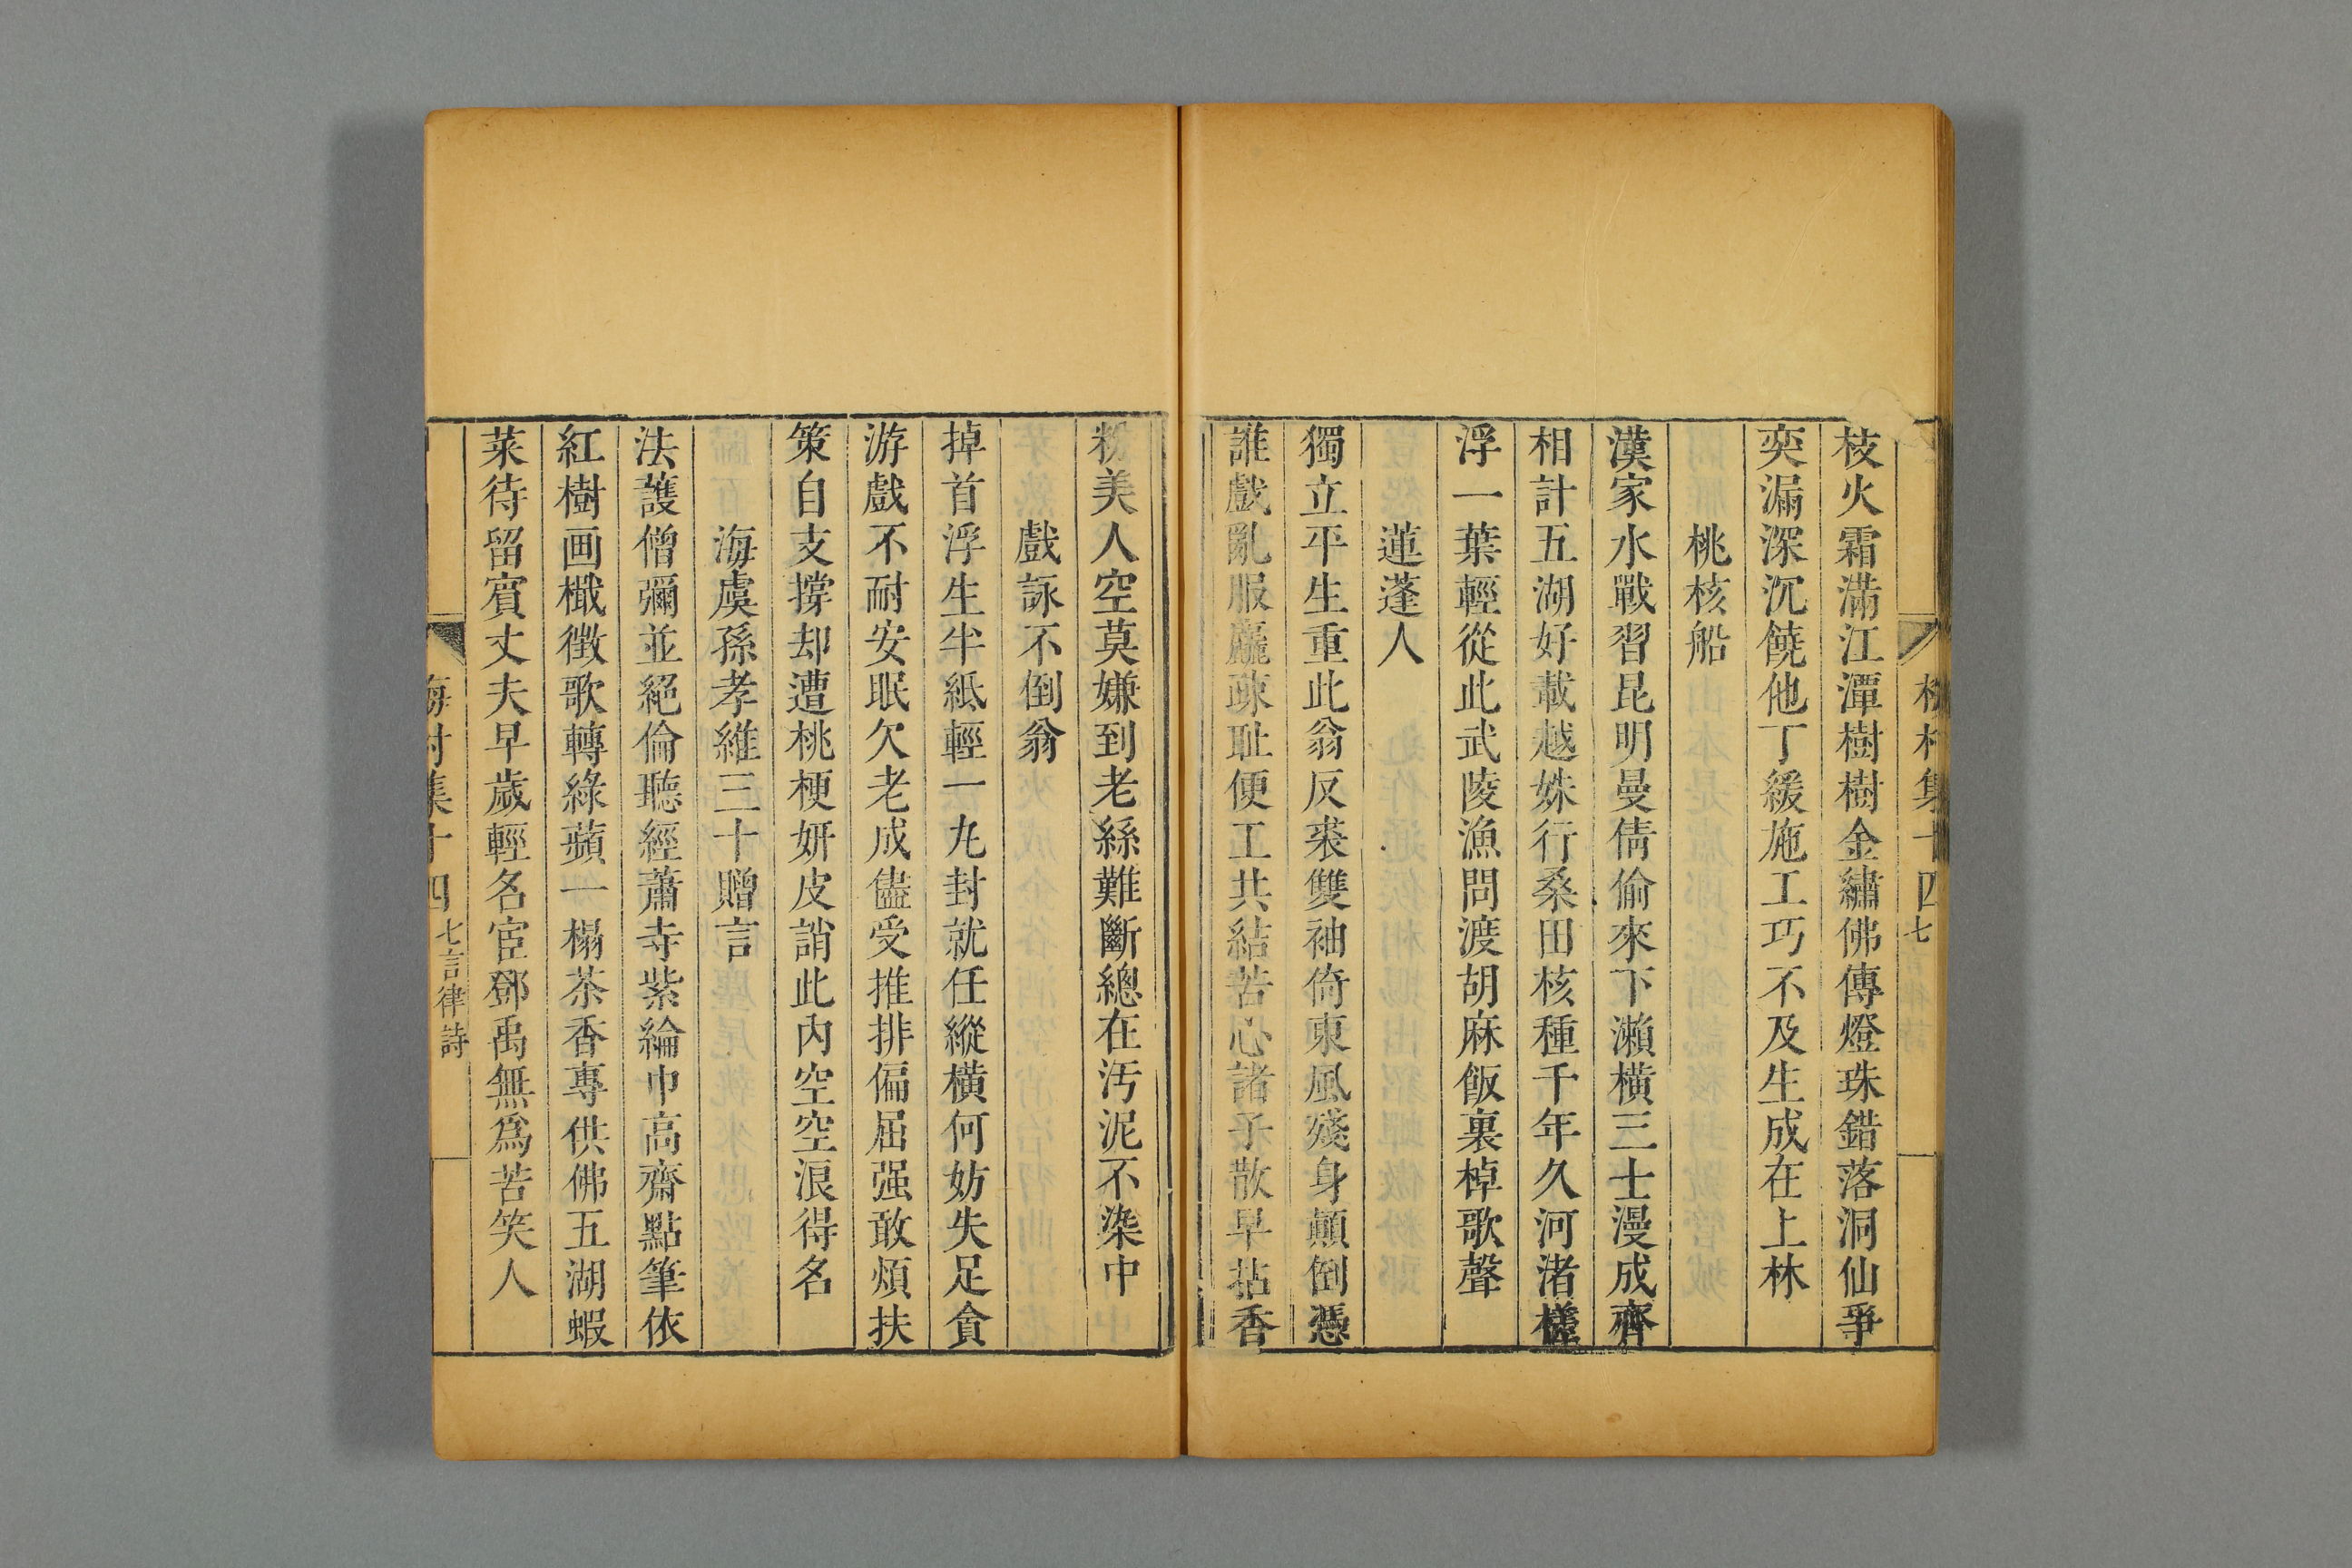 集十四 七
枝火霜滿江潭樹樹金繡佛傳燈珠錯落洞仙爭
奕漏深沉饒他丁緩施工巧不及生成在上林
桃核船
漢家水戰習昆明曼倩偷來下瀨橫三士漫成齊
相計五湖好載越姝行桑田核種千年久河渚槎
浮一葉輕從此武陵漁問渡胡麻飯裏棹歌聲
蓮蓬人
獨立平生重此翁反裘雙袖倚東風殘身顛倒憑
誰戲亂服麤疎耻便工共結苦心諸子散早拈香
粉美人空莫嫌到老絲難斷總在汚泥不染中
戲詠不倒翁
掉首浮生半紙輕一丸封就任縱橫何妨失足貪
游戲不耐安眠欠老成儘受推排偏屈强敢煩扶
策自支撐却遭桃梗妍皮誚此內空空浪得名
海虞孫孝維三十贈言
法護僧彌並絕倫聽經蕭寺紫綸巾高齋點筆依
紅樹画檝徵歌轉綠蘋一榻茶香專供佛五湖蝦
菜待留賓丈夫早歲輕名宦鄧禹無爲苦笑人
梅村集十四 七言律詩